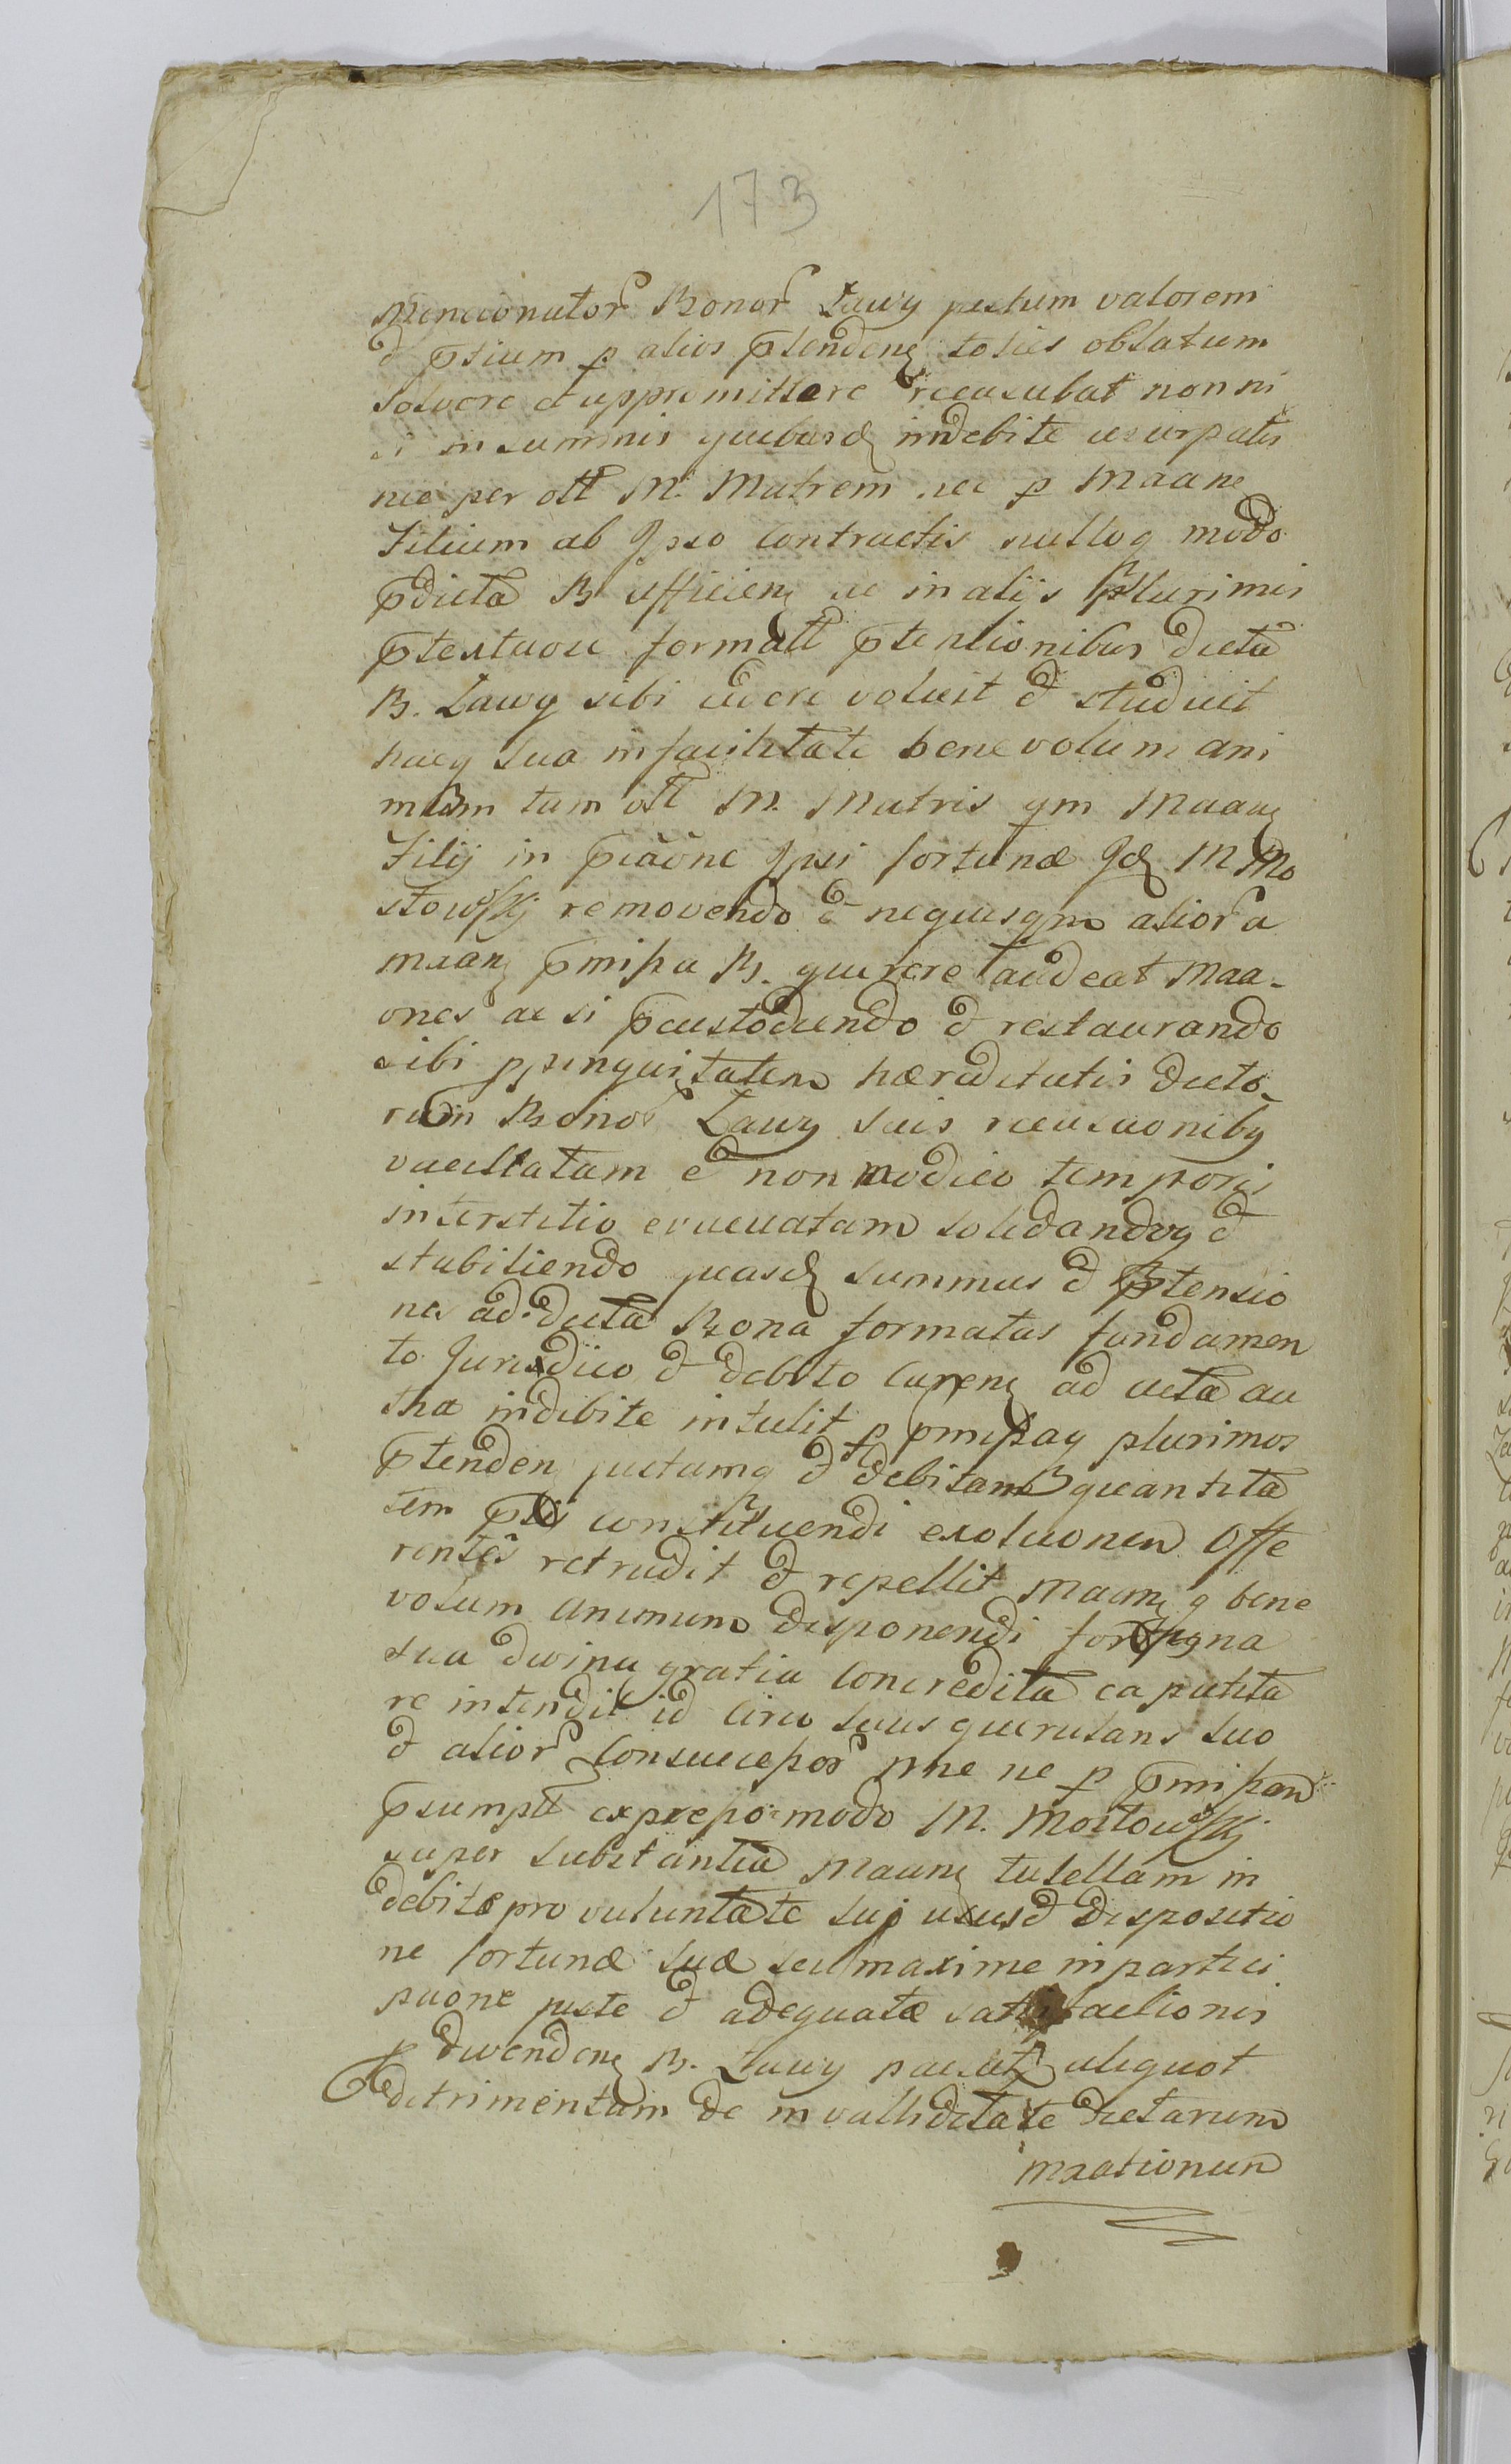 173
mencionator Bonor Ławy justum valorem
et p̄tium p alios p̄tendenȩ toties oblatum
solvere et appromittere recusabat non ni
si in summis quibusd indebite usurpatis
nec per ott M. Matrem nec p Maane
Filium ab Ipso contractis nulloq modo
p̄dicta B afficienȩ ac in alijs plurimis
p̄textuose formatt p̄tensionibus dicta
B. Ławy sibi cedere voluit et studuit
hacq sua infacilitate benevolum ani
mum tum ott M. Matris qm Maanȩ
Filij in p̄cāōne Ipsi fortunæ Id M Mo
stowskj removendo et nequisqm alior a
maanȩ p̄missa B. querere audeat Maa-
ones ac si p̄custodiendo et restaurando
sibi ppinquitatem hæreditatis dicto-
rum Bonor Ławy suis recusaonibq
vacillatam et non modico temporis
interstitio evacuatam solidandoq et
stabiliendo quasd summas et p̄tensio
nes ad dicta Bona formatas fundamen
to Juridico et debito carenȩ ad acta au
tha indebite intulit p p̄missaq plurimos
p̄tendenȩ justamq et debitam quantita
tem p̄tij constituendi exoluonem Offe
rentes retrudit et repellit Maanȩ q bene
volum animum disponendi fortuna
sua divina gratia concredita ea putita
re intendit id circo suus querulans suo
et alior consuccessor nne ne p p̄missam
p̄sumptt expresso modo M. Mostowskj
super substantia Maanȩ tutellam in
debite pro voluntate suj ususd dispositio
ne fortunæ suæ seu maxime in partici
paone juste et adequatæ satisfactionis
p divendenȩ B. Ławy paciat aliquot
detrimentum de invalliditate dictarum
maationum